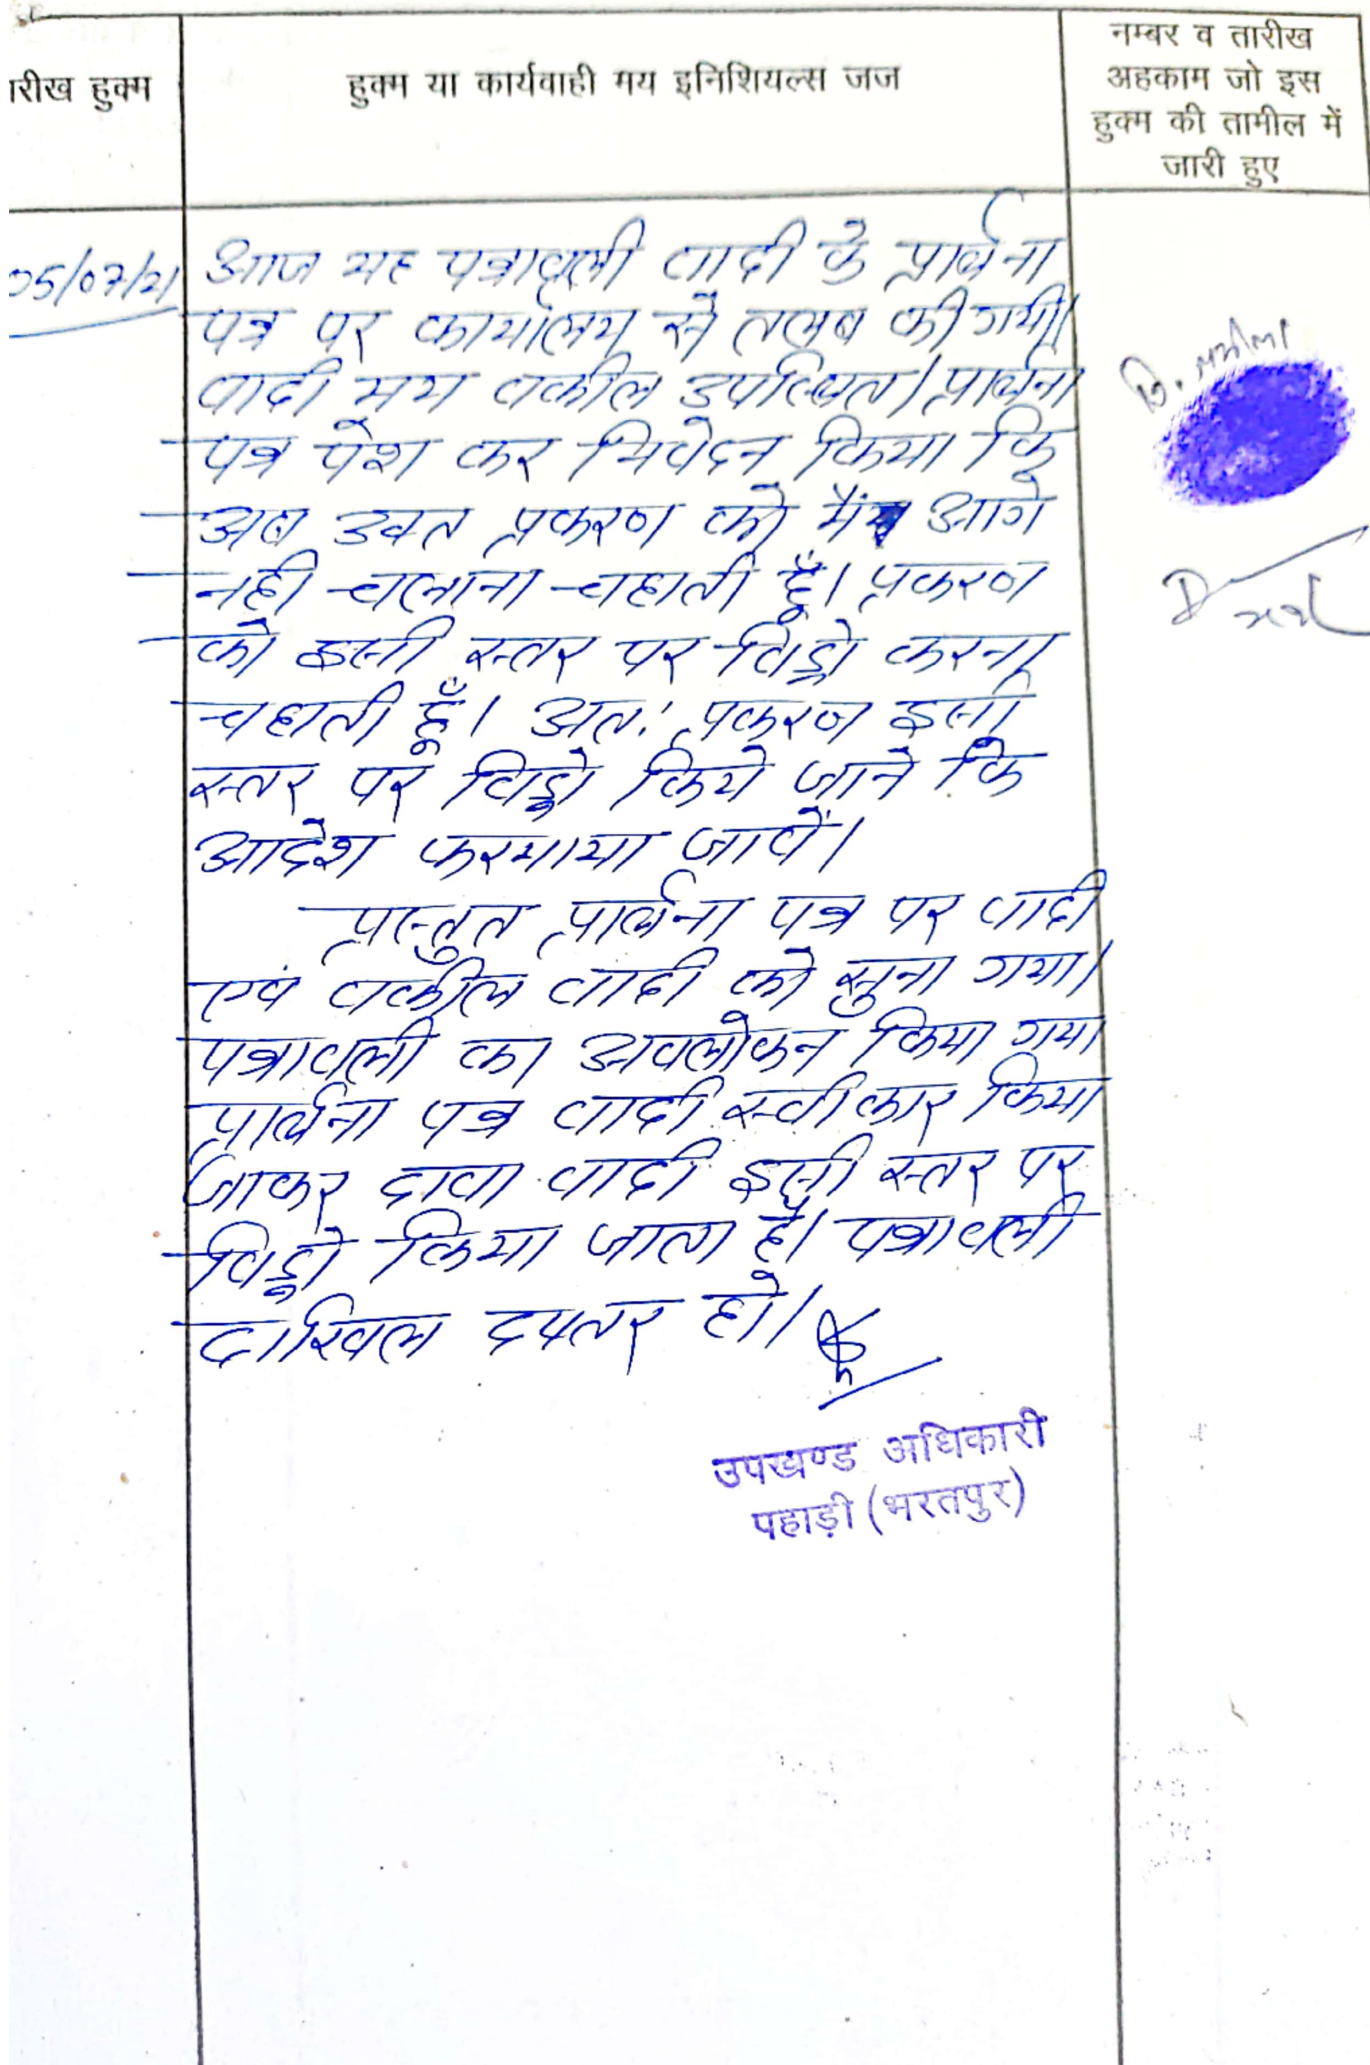 नम्बर व तारीख
रीख हुक्म
हुक्म या कार्यवाही मय इनिशियल्स जज
अहकाम जो इस
हुक्म की तामील में
जारी हुए
05/07/21
आज यह पत्रावली वादी के प्रार्थना
पत्र पर कार्यालय से तलब की गयी।
वादी मय वकील उपस्थित। प्रार्थना
पत्र पेश कर निवेदन किया कि
अब उक्त प्रकरण को मैं आगे
नही चलाना चहाती हूँ। प्रकरण
को इसी स्तर पर विड्रो करना
चहाती हूँ। अतः प्रकरण इसी
स्तर पर विड्रो किये जाने कि
आदेश फरमाया जावें।
प्रस्तुत प्रार्थना पत्र पर वादी
एवं वकील वादी को सुना गया।
पत्रावली का अवलोकन किया गया
प्रार्थना पत्र वादी स्वीकार किया
जाकर दावा वादी इसी स्तर पर
विड्रो किया जाता है। पत्रावली
दाखिल दफ्तर हो।
उपखण्ड अधिकारी
पहाड़ी (भरतपुर)